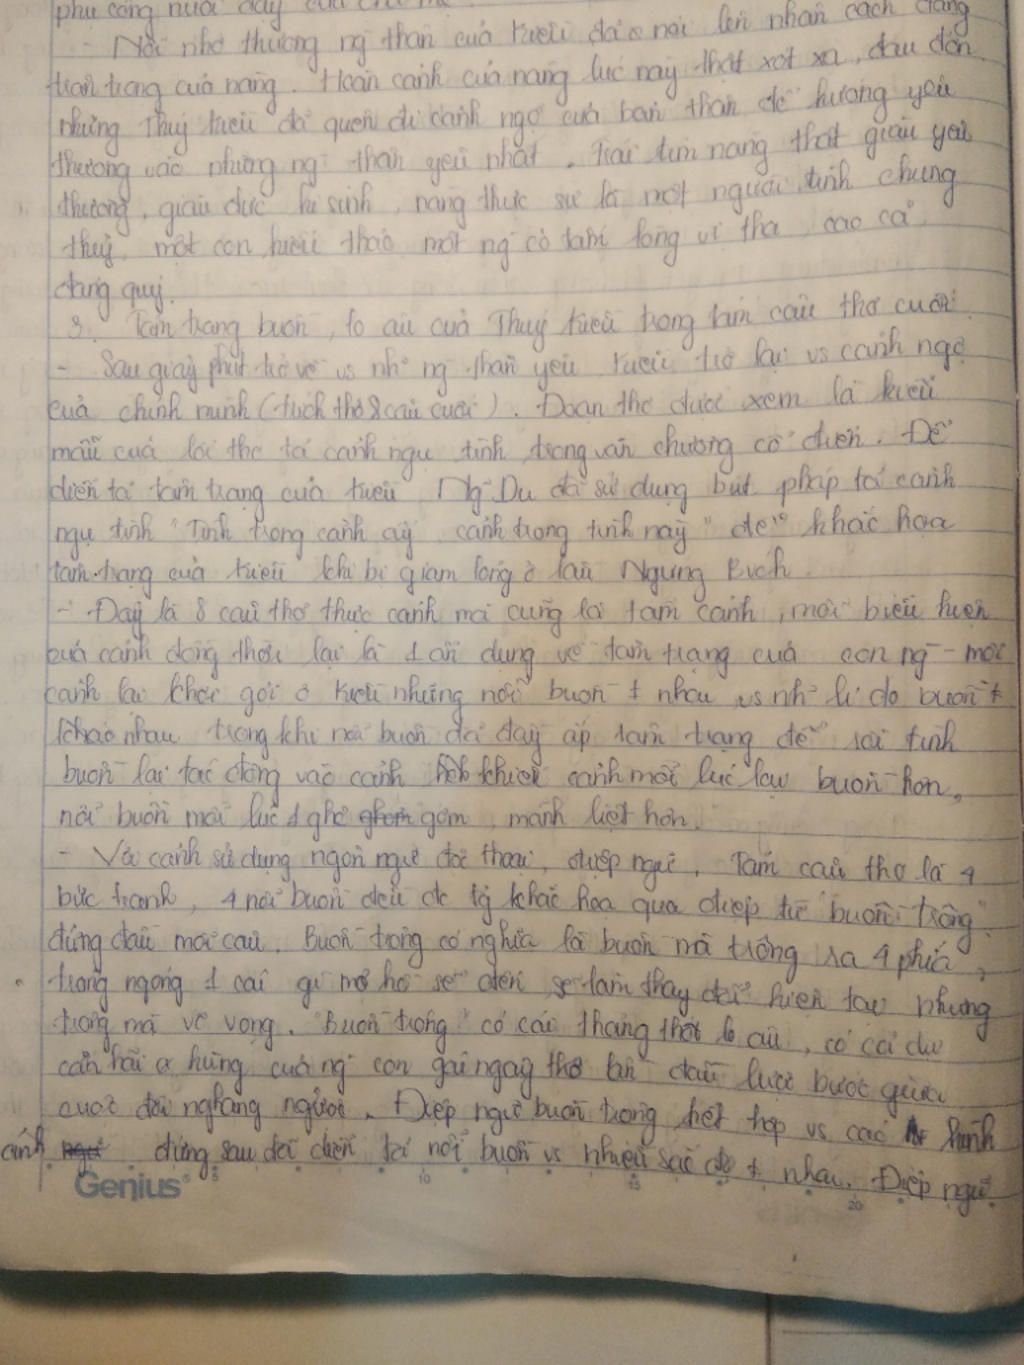 phụ công nuôi dạy của cha mẹ
- Nỗi nhớ thương ng thân của Kiều đã nói lên nhân cách đáng
trân trọng của nàng. Hoàn cảnh của nàng lúc này thật xót xa, đau đớn
nhưng Thuý Kiều đã quên đi cảnh ngộ của bản thân để hướng yêu
thương vào những ng thân yêu nhất. Trái tim nàng thật giàu yêu
thương, giàu đức hi sinh, nàng thực sự là một người tình chung
thuỷ, một con hiếu thảo một ng có tấm lòng vị tha, cao cả,
đáng quý.
3. Tâm trạng buồn, lo âu của Thuý Kiều trong tám câu thơ cuối.
- Sau giây phút trở về vs nh~ ng thân yêu Kiều trở lại vs cảnh ngộ
của chính mình (trích thơ 8 câu cuối). Đoạn thơ được xem là kiểu
mẫu của lối thơ tả cảnh ngụ tình trong văn chương cổ điển. Để
diễn tả tâm trạng của Kiều Ng~ Du đã sử dụng bút pháp tả cảnh
ngụ tình "Tình trong cảnh ấy cảnh trong tình này" để khắc hoạ
tâm trạng của Kiều khi bị giam lỏng ở lầu Ngưng Bích.
- Đây là 8 câu thơ thực cảnh mà cũng là tâm cảnh, mỗi biểu hiện
của cảnh đồng thời lại là 1 ẩn dụng về tâm trạng của con ng - mỗi
cảnh lại khơi gợi ở Kiều những nỗi buồn ≠ nhau vs nh~ lí do buồn ≠
khác nhau trong khi nỗi buồn đã đầy ắp tâm trạng để rồi tình
buồn lại tác động vào cảnh khiến cảnh mỗi lúc lại buồn hơn,
nỗi buồn mỗi lúc 1 ghê gớm, mãnh liệt hơn.
- Với cảnh sử dụng ngôn ngữ đối thoại, điệp ngữ. Tám câu thơ là 4
bức tranh, 4 nỗi buồn đều đc tg khắc hoạ qua điệp từ "buồn trông"
đứng đầu mỗi câu. Buồn trông có nghĩa là buồn mà trông ra 4 phía,
trông ngóng 1 cái gì mơ hồ sẽ đến sẽ làm thay đổi hiện tại nhưng
trông mà vô vọng. "Buồn trông" có cái thảng thốt lo âu, có cả dự
cảm hãi hùng của ng con gái ngây thơ lần đầu lược bước giữa
cuộc đời nghang người. Điệp ngữ buồn trông kết hợp vs các hình
ảnh đứng sau đã diễn tả nỗi buồn vs nhiều sắc độ ≠ nhau. Điệp ngữ
Genius 5 10 15 20